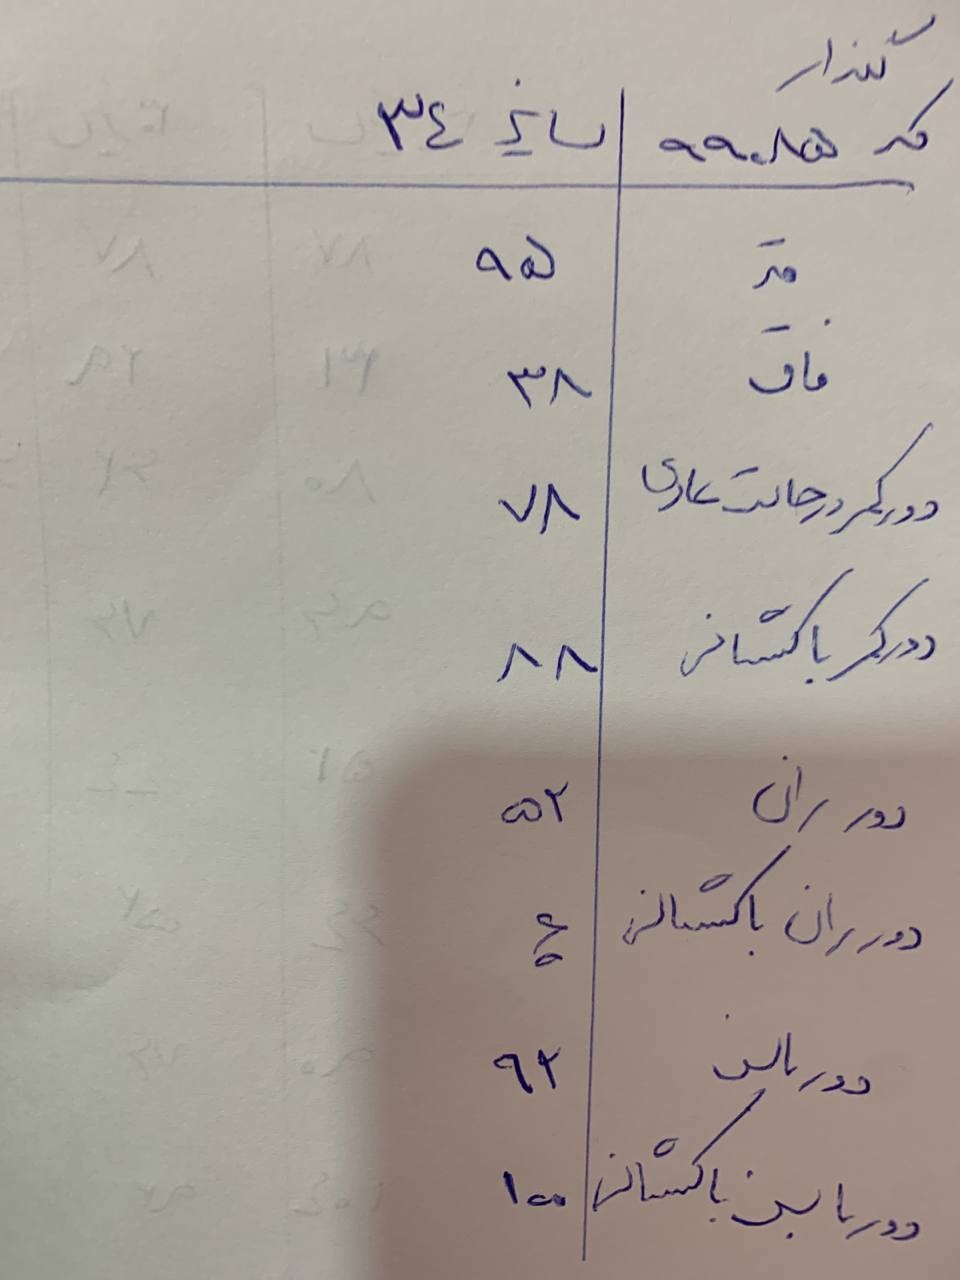 گلزار
کد ۹۹۰۸۵ سایز ۳٤
قد ۹۵
فاق ۳۸
دور کمر در حالت عادی ۷۸
دور کمر با کشسانی ۸۸
دور ران ۵۲
دور ران با کشسانی
دور باسن ۹۲
دور باسن با کشسانی ۱۰۰